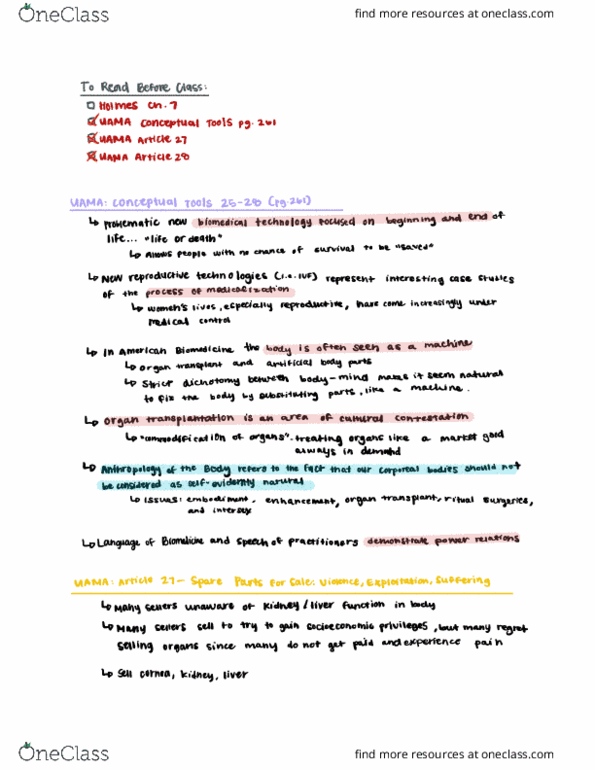 OneClass
find more resources at oneclass.com
To Read Before Class:
Holmes Ch. 7
UAMA Conceptual Tools pg. 261
UAMA Article 27
UAMA Article 28
UAMA: Conceptual Tools 25-28 (pg. 261)
Problematic new biomedical technology focused on beginning and end of
life... "life or death"
Allows people with no chance of survival to be "saved"
New reproductive technologies (i.e. IVF) represent interesting case studies
of the process of medicalization
women's lives, especially reproductive, have come increasingly under
medical control
In American Biomedicine the body is often seen as a machine
organ transplant and artificial body parts
Strict dichotomy between body-mind makes it seem natural
to fix the body by substituting parts, like a machine.
Organ transplantation is an area of cultural contestation
"commodification of organs". treating organs like a market good
always in demand
Anthropology of the Body refers to the fact that our corporeal bodies should not
be considered as self-evidently natural
Issues: embodiment, enhancement, organ transplant, ritual surgeries,
and intersex
Language of Biomedicine and speech of practitioners demonstrate power relations
UAMA: Article 27- Spare Parts for Sale: Violence, Exploitation, Suffering
Many sellers unaware of kidney/liver function in body
Many sellers sell to try to gain socioeconomic privileges, but many regret
selling organs since many do not get paid and experience pain
Sell cornea, kidney, liver
OneClass
find more resources at oneclass.com